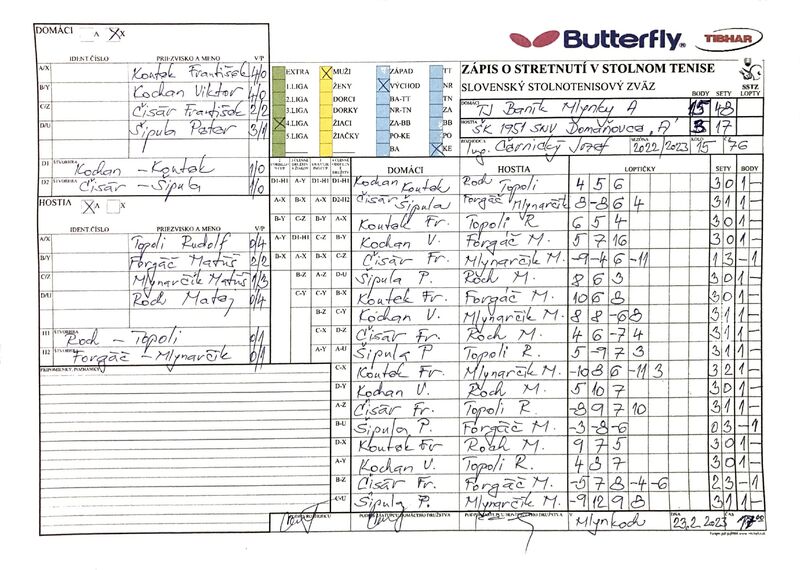 DOMÁCI A X
Butterfly TIBHAR
IDENT.ČÍSLO PRIEZVISKO A MENO V/P
A/X Koutek František 4/0
B/Y Kochan Viktor 4/0
C/Z Čisár František 2/2
D/U Šipula Peter 3/1
D1 ŠTVORHRA Kochan - Koutek 1/0
D2 ŠTVORHRA Čisár - Šipula 1/0
HOSTIA A X
IDENT.ČÍSLO PRIEZVISKO A MENO V/P
A/X Topoli Rudolf 0/4
B/Y Forgáč Matúš 2/2
C/Z Mlynarčik Matúš 1/3
D/U Roch Matej 0/4
H1 ŠTVORHRA Roch - Topoli 0/1
H2 ŠTVORHRA Forgáč - Mlynarčik 0/1
PRIPOMIENKY, POZNÁMKY
EXTRA MUŽI ZÁPAD TT
1.LIGA ŽENY VÝCHOD NR
2.LIGA DORCI BA-TT TN
3.LIGA DORKY NR-TN ZA
4.LIGA ŽIACI ZA-BB BB
5.LIGA ŽIAČKY PO-KE PO
BA KE
ZÁPIS O STRETNUTÍ V STOLNOM TENISE
SLOVENSKÝ STOLNOTENISOVÝ ZVÄZ
SSTZ
BODY SETY LOPTY
DOMÁCI TJ Baník Mlynky A 15 48
HOSTIA ŠK 1951 SNV Domaňovce "A" 3 17
ROZHODCA Ing. Černický Jozef SEZÓNA 2022/2023 15 76
DOMÁCI HOSTIA LOPTIČKY SETY BODY
D1-H1 A-Y D1-H1 D1-H1 Kochan Koutek Roch Topoli 4 5 6 3 0 1 -
A-X B-X A-X D2-H2 Čisár Šipula Forgáč Mlynarčik 8 -8 6 4 3 1 1 -
B-Y C-Z B-Y A-X Koutek Fr. Topoli R 6 5 4 3 0 1 -
A-Y D1-H1 C-Z B-Y Kochan V. Forgáč M. 5 7 16 3 0 1 -
B-X A-X B-X C-Z Čisár Fr. Mlynarčik M. -9 -4 6 -11 1 3 - 1
B-Z A-Z D-U Šipula P. Roch M. 8 6 3 3 0 1 -
C-Y B-X Koutek Fr. Forgáč M. 10 6 8 3 0 1 -
B-Z C-Y Kochan V. Mlynarčik M. 8 8 -6 8 3 1 1 -
C-X D-Z Čisár Fr. Roch M. 4 6 -7 4 3 1 1 -
A-Y A-U Šipula P Topoli R. 5 -9 7 3 3 1 1 -
C-X Koutek Fr. Mlynarčik M. -10 8 6 -11 3 3 2 1 -
D-Y Kochan V. Roch M. 5 10 7 3 0 1 -
A-Z Čisár Fr. Topoli R. -8 9 7 10 3 1 1 -
B-U Šipula P. Forgáč M. -3 -8 -6 0 3 - 1
D-X Koutek Fr Roch M. 9 7 5 3 0 1 -
A-Y Kochan V. Topoli R. 4 8 7 3 0 1 -
B-Z Čisár Fr. Forgáč M. -5 7 8 -4 -6 2 3 - 1
C-U Šipula P. Mlynarčik M. -9 12 9 8 3 1 1 -
V Mlynkoch DŇA 23.2.2023 ČAS 17:00